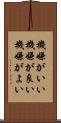 機嫌がいい
機嫌が良い
機嫌がよい